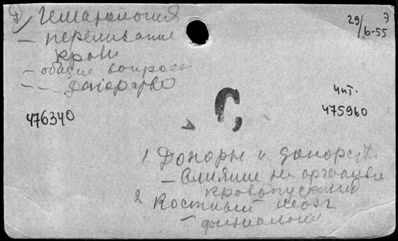 2) Гематология
— переливание
крови
— общие вопросы
— — донорство
29/6-55
7
чит.
475960
476340
1 Доноры и донорст.
— Влияние на организм
кровопускания
2 Костный мозг
— физиология